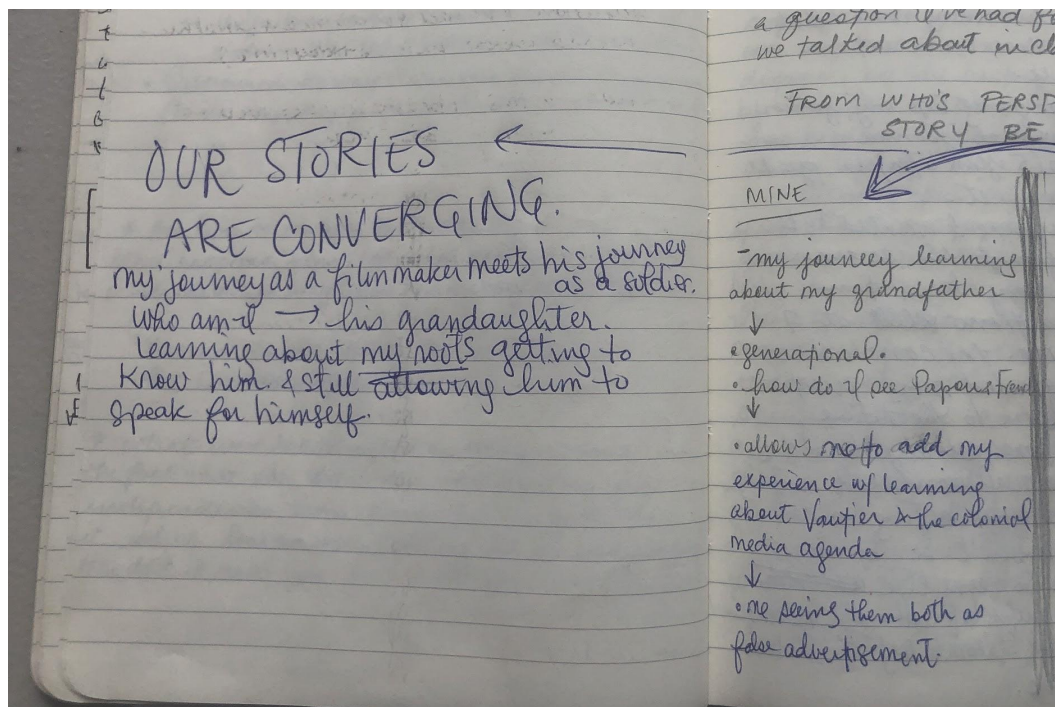 OUR STORIES
ARE CONVERGING.
my journey as a filmmaker meets his journey
as a soldier.
who am I → his grandaughter.
learning about my roots getting to
know him. & still allowing him to
speak for himself.
a question I've had
we talked about
FROM WHO'S
STORY BE
MINE
- my journey learning
about my grandfather
↓
• generational.
• how do I see Papous
↓
• allows me to add my
experience w/ learning
about Vautier & the colonial
media agenda
↓
• me seeing them both as
false advertisement.